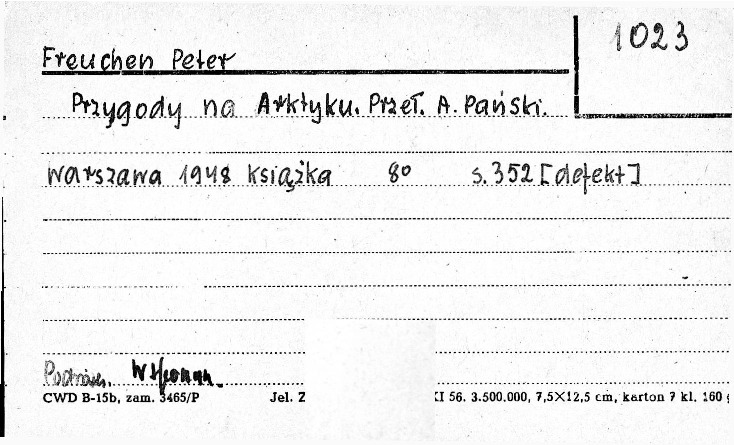 1023
Freuchen Peter
Przygody na Arktyku. Przeł. A. Pański.
Warszawa 1948 Książka 8° s. 352 [defekt]
CWD B-15b, zam. 3465/P Jel. Z XI 56. 3.500.000, 7,5×12,5 cm, karton 7 kl. 160 g